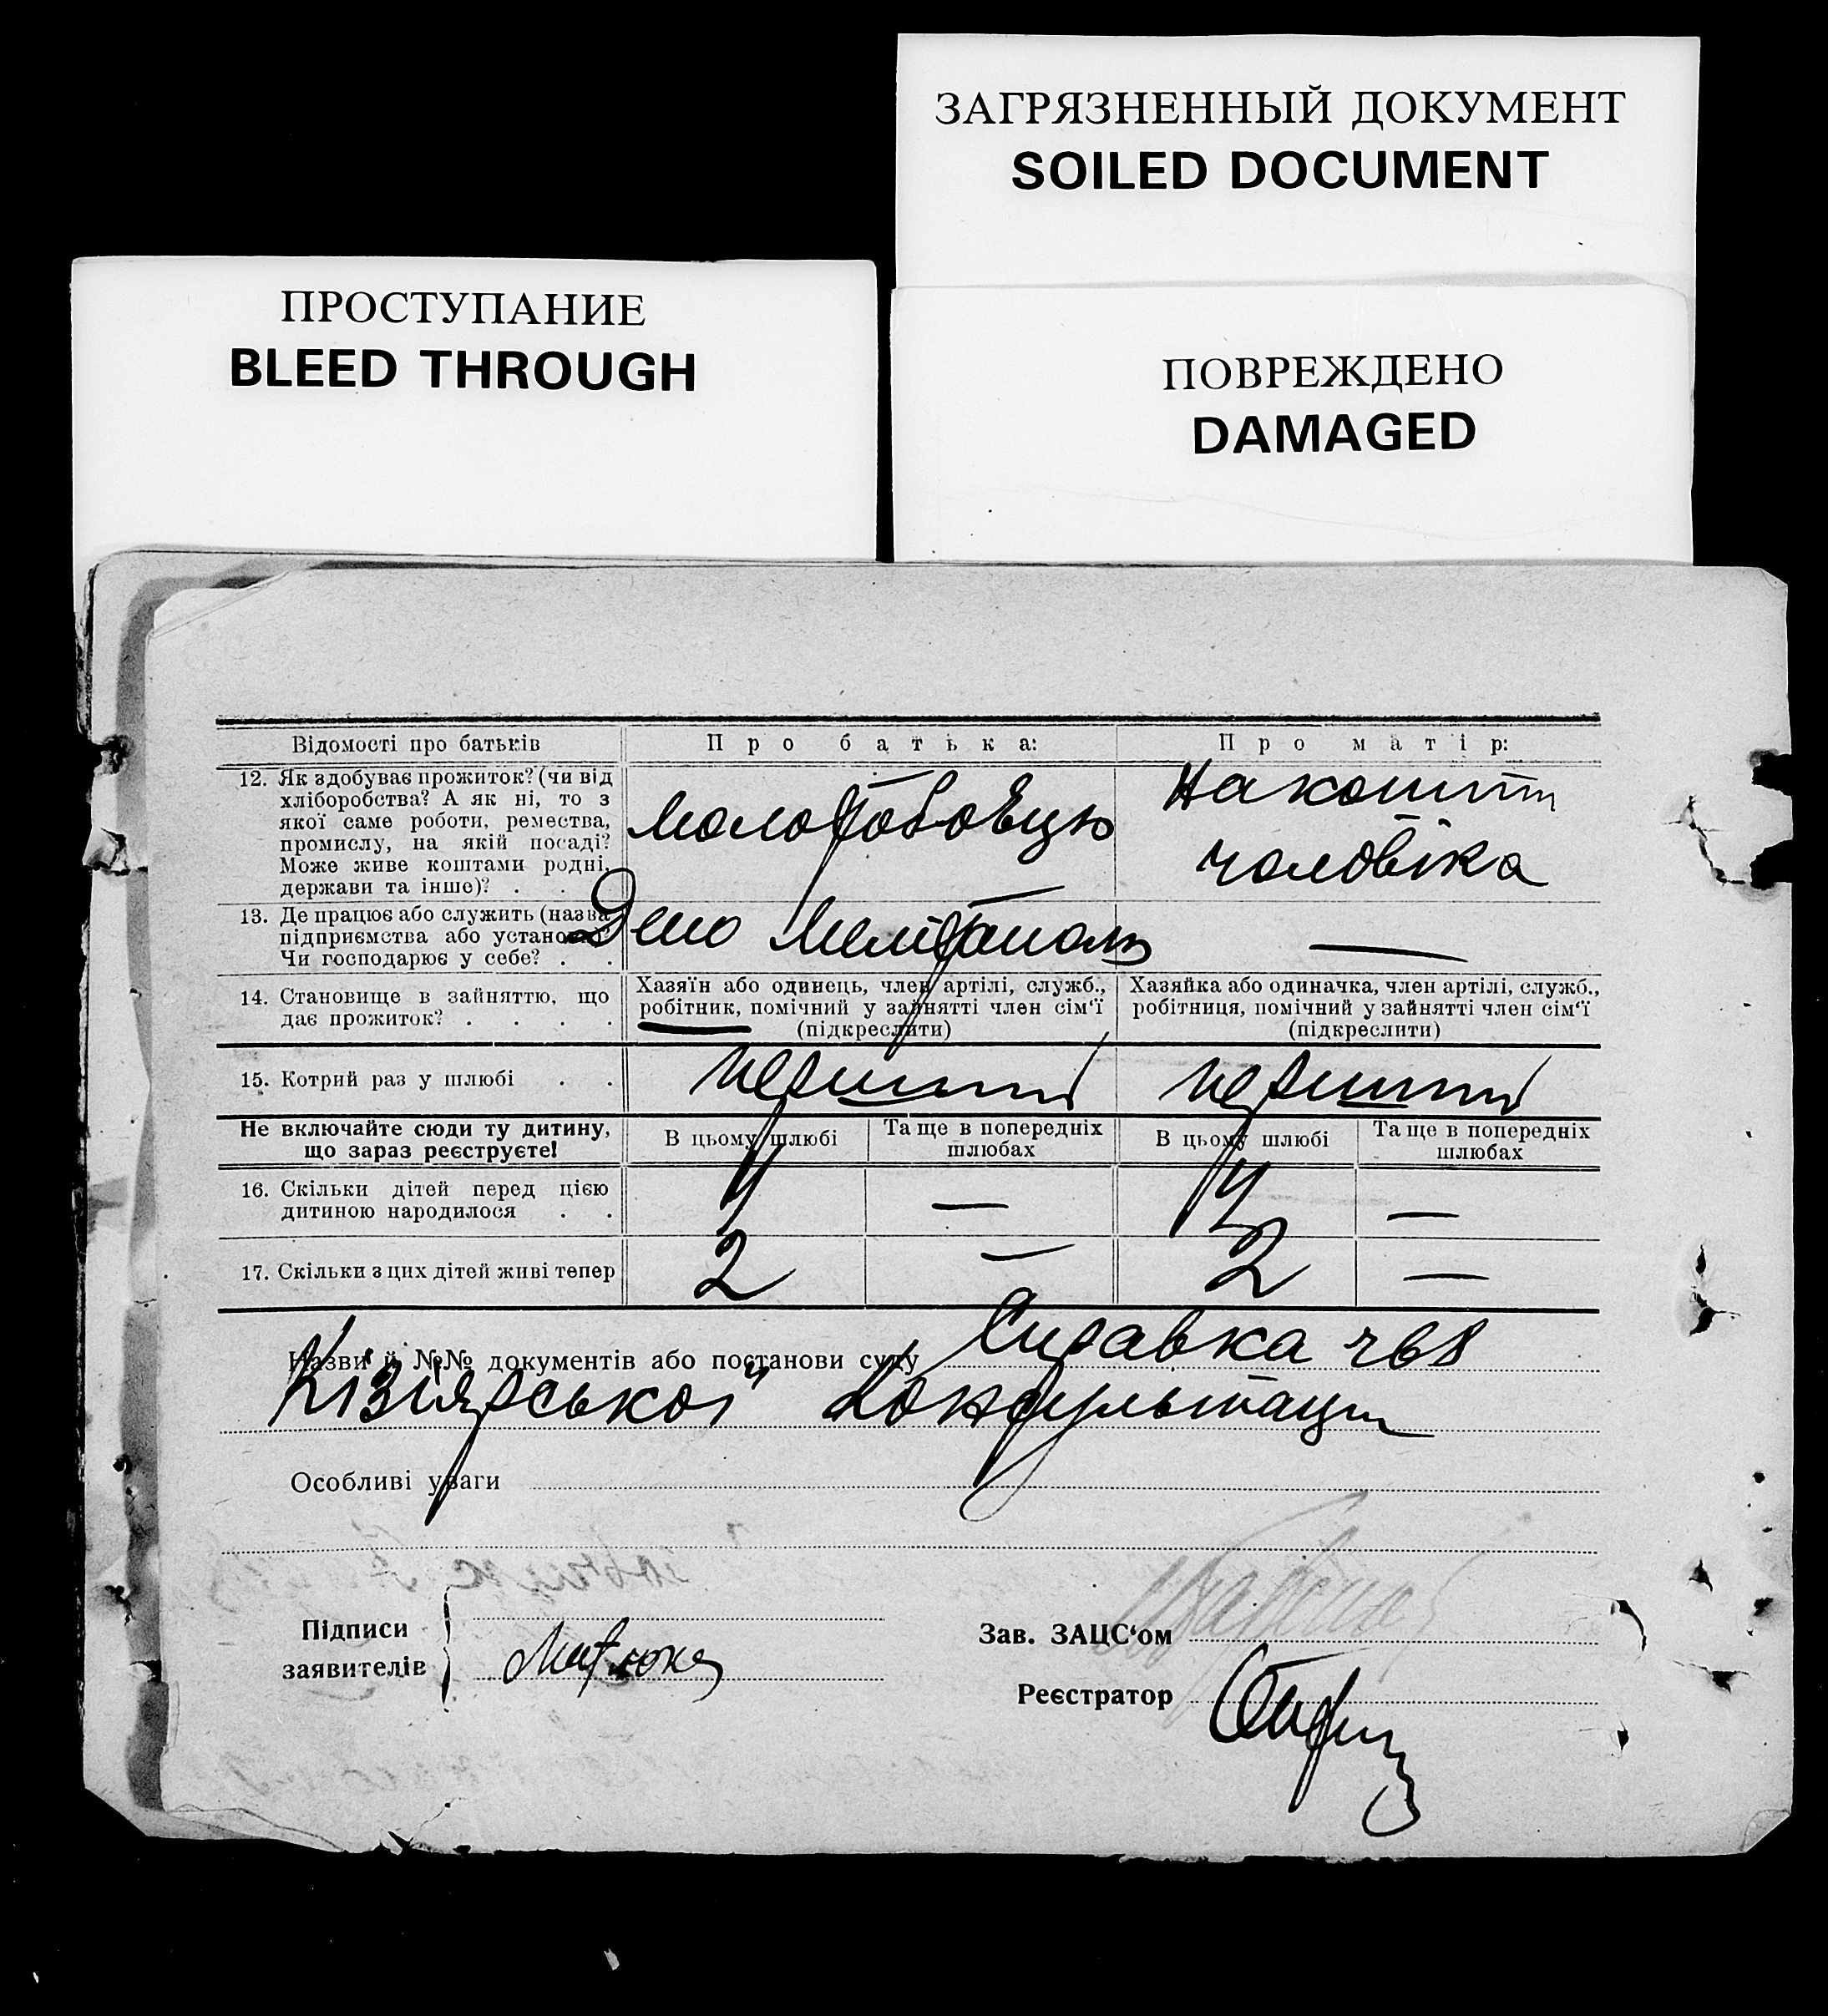 ЗАГРЯЗНЕННЫЙ ДОКУМЕНТ
SOILED DOCUMENT
ПРОСТУПАНИЕ
BLEED THROUGH
ПОВРЕЖДЕНО
DAMAGED
Відомості про батьків
Про батька:
Про матір:
12. Як здобуває прожиток? (чи від
хліборобства? А як ні, то з
якої саме роботи, ремества,
промислу, на якій посаді?
Може живе коштами родні,
держави та інше)? . .
Молотобоєць
На кошти
чоловіка
13. Де працює або служить (назва
підприємства або установи)?
Чи господарює у себе? . .
Депо Мелітополь
—
14. Становище в зайняттю, що
дає прожиток? . . . .
Хазяїн або одинець, член артілі, служб.,
робітник, помічний у зайнятті член сім'ї
(підкреслити)
Хазяйка або одиначка, член артілі, служб.,
робітниця, помічний у зайнятті член сім'ї
(підкреслити)
15. Котрий раз у шлюбі . .
перший
перший
Не включайте сюди ту дитину,
що зараз реєструєте!
В цьому шлюбі
Та ще в попередніх
шлюбах
В цьому шлюбі
Та ще в попередніх
шлюбах
16. Скільки дітей перед цією
дитиною народилося . .
4
—
4
—
17. Скільки з цих дітей живі тепер
2
—
2
—
Назви й №№ документів або постанови суду Справка ч68
Кізіярської Консультаци
Особливі уваги
Підписи
заявителів
Зав. ЗАЦС'ом
Реєстратор